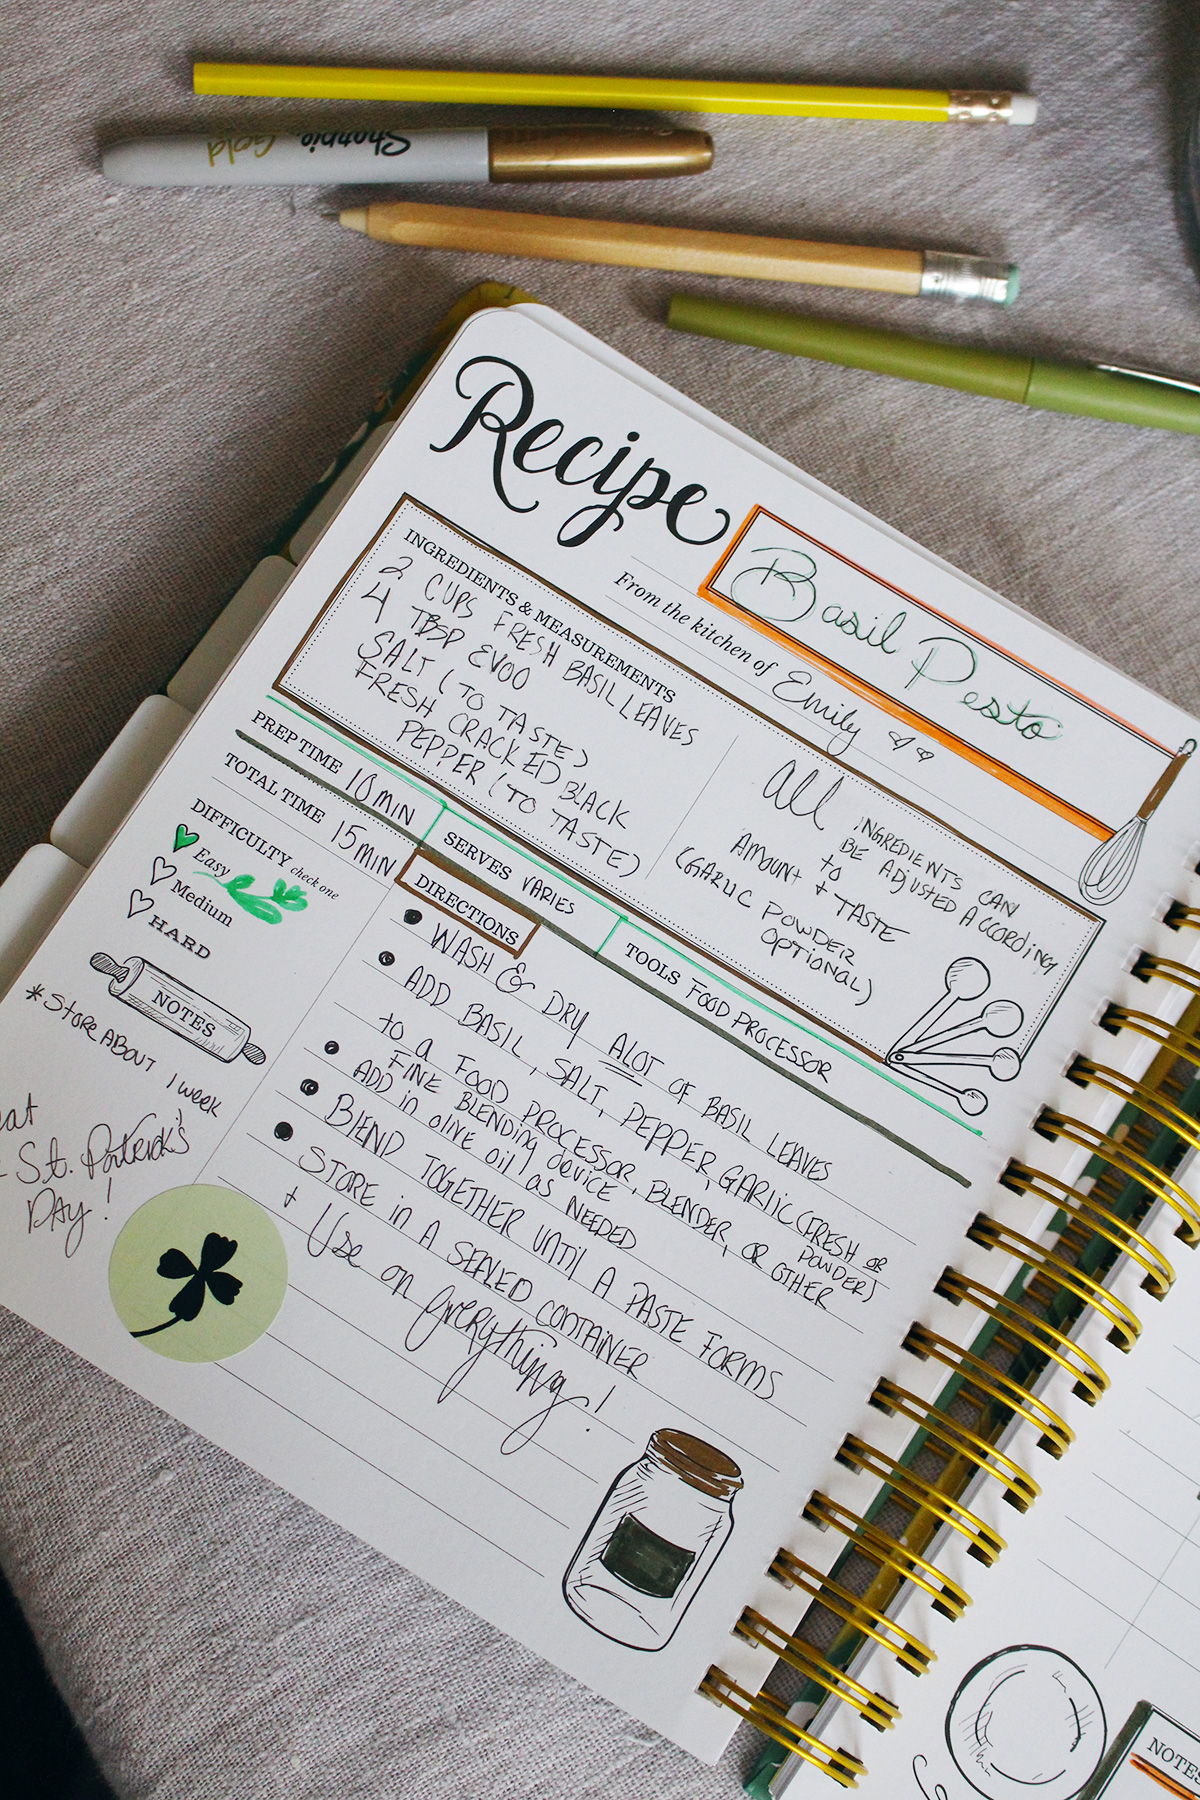 Sharpie Gold
Recipe
Basil Pesto
From the kitchen of Emily
INGREDIENTS & MEASUREMENTS
2 CUPS FRESH BASIL LEAVES
4 TBSP EVOO
SALT (TO TASTE)
FRESH CRACKED BLACK
PEPPER (TO TASTE)
All INGREDIENTS CAN
BE ADJUSTED ACCORDING
TO
AMOUNT + TASTE
(GARLIC POWDER
OPTIONAL)
PREP TIME 10 MIN
SERVES VARIES
TOOLS FOOD PROCESSOR
TOTAL TIME 15 MIN
DIFFICULTY check one
Easy
Medium
HARD
NOTES
*STORE ABOUT 1 week
St. Patrick's
DAY!
DIRECTIONS
• WASH & DRY ALOT OF BASIL LEAVES
• ADD BASIL, SALT, PEPPER, GARLIC (FRESH OR
POWDER)
to a FOOD PROCESSOR, BLENDER, OR OTHER
FINE BLENDING device
• ADD in olive oil as NEEDED
• BLEND TOGETHER UNTIL A PASTE FORMS
• STORE in A SEALED CONTAINER
+ Use on everything!
NOTES